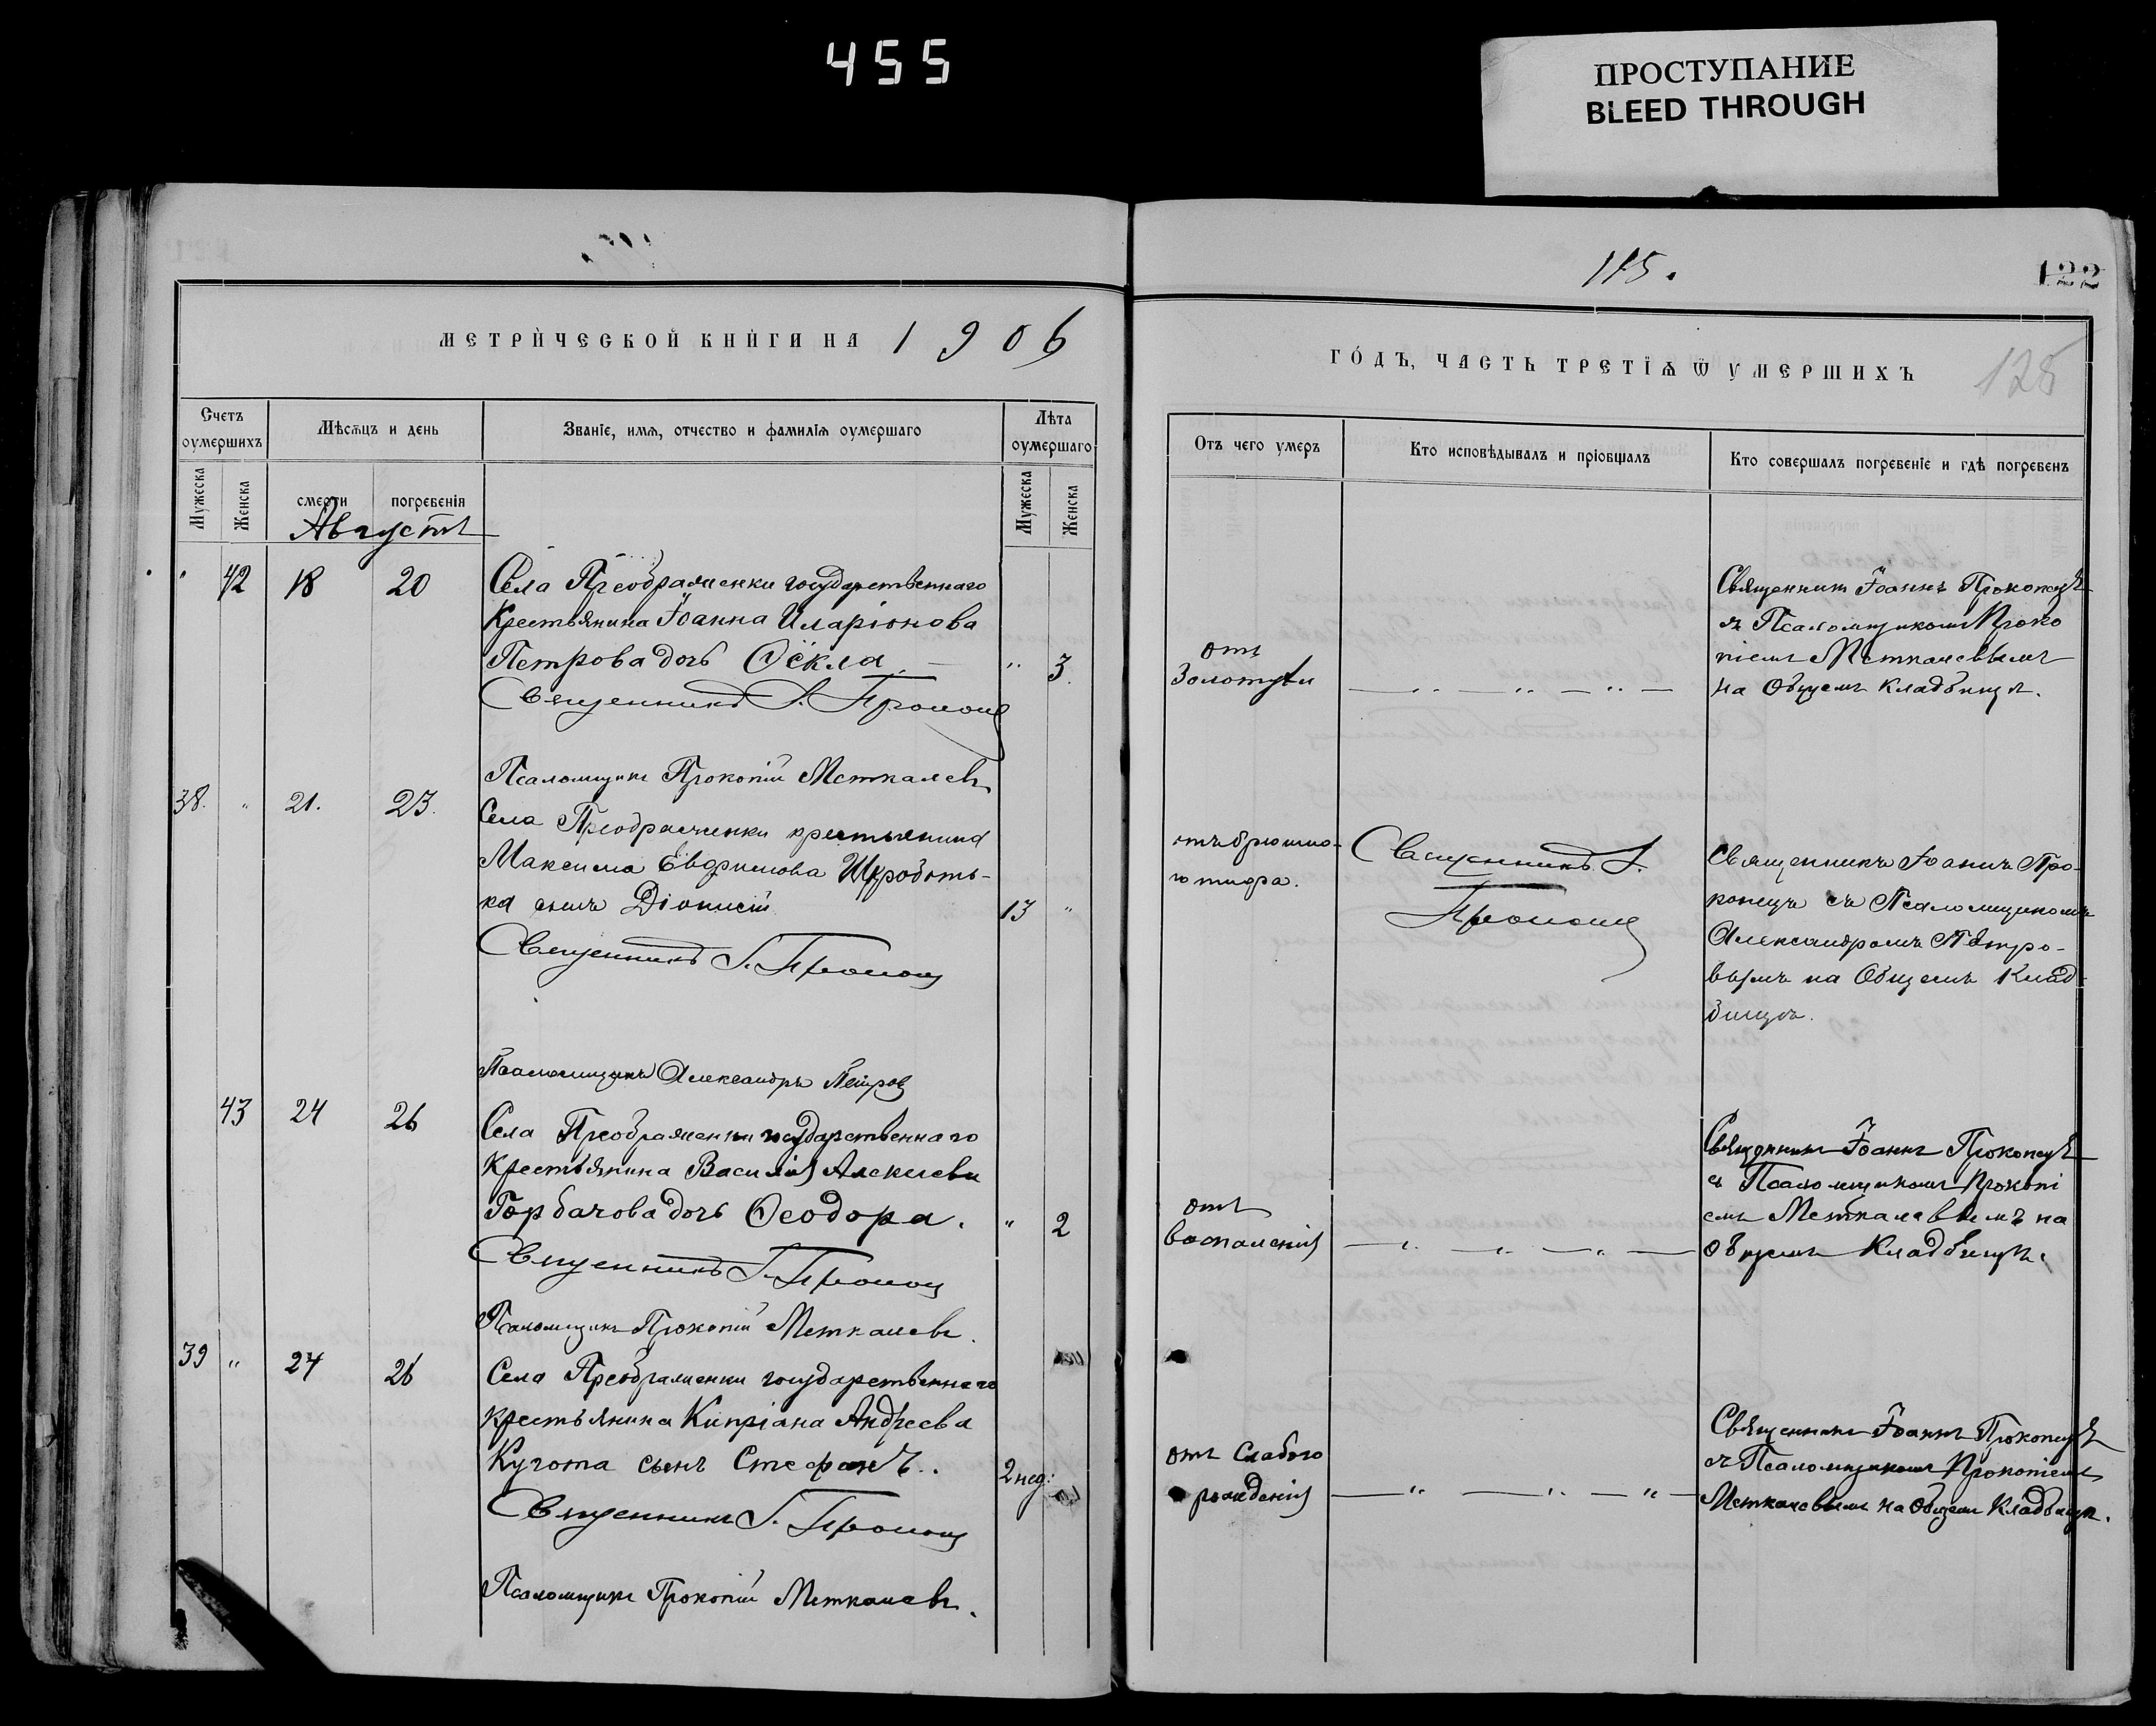 455
ПРОСТУПАНИЕ
BLEED THROUGH
115.
122
128
МЕТРИЧЕСКОЙ КНИГИ НА 1906
ГОДЪ, ЧАСТЬ ТРЕТІѦ Ѿ УМЕРШИХЪ
Счетъ оумершихъ
Мѣсѧцъ и день
Званіе, имѧ, отчество и фамиліѧ оумершаго
Лѣта оумершаго
Отъ чего умеръ
Кто исповѣдывалъ и пріобщалъ
Кто совершалъ погребеніе и гдѣ погребенъ
Мужеска
Женска
смерти
погребенія
Мужеска
Женска
Августъ
" 42 18 20 Села Преображенки государственнаго
Крестьянина Іоанна Иларіонова
Петрова дочь Ѳёкла " 3.
Священникъ І. Прокопецъ
Псаломщикъ Прокопій Меткалевъ
отъ
Золотухи
Священникъ Іоаннъ Прокопецъ
съ Псаломщикомъ Проко
піемъ Меткалевымъ
на Общемъ Кладбищѣ.
38. " 21. 23. Села Преображенки крестьянина
Максима Евфимова
ка сынъ Діонисій 13 "
Священникъ І. Прокопецъ
Псаломщикъ Александръ Петровъ
отъ брюшно-
го тифа.
Священникъ І.
Прокопецъ
Священникъ Іоаннъ Про-
копецъ съ Псаломщикомъ
Александромъ Петро-
вымъ на Общемъ Клад-
бищѣ.
43 24 26 Села Преображенки государственнаго
Крестьянина Василія Алексѣева
Горбачова дочь Ѳеодора. " 2
Священникъ І. Прокопецъ
Псаломщикъ Прокопій Меткалевъ.
отъ
воспаленія
Священникъ Іоаннъ Прокопецъ
съ Псаломщикомъ Прокопі
емъ Меткалевымъ на
Общемъ Кладбищѣ.
39 " 24 26 Села Преображенки государственнаго
крестьянина Кипріана Андреева
Кугота сынъ Стефанъ.. 2 нед:
Священникъ І. Прокопецъ
Псаломщикъ Прокопій Меткалевъ.
отъ Слабого
рожденія
Священникъ Іоаннъ Прокопецъ
съ Псаломщикомъ Прокопіемъ
Меткалевымъ на Общемъ Кладбищѣ.